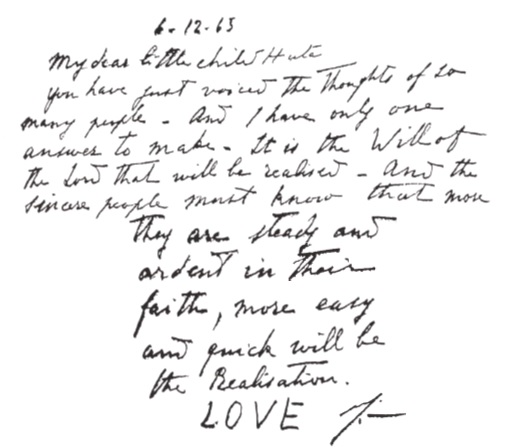 6-12-63
My dear little child Huta
you have just voiced the thoughts of so
many people - And I have only one
answer to make - It is the Will of
the Lord that will be realised - And the
sincere people must know that more
they are steady and
ardent in their
faith, more easy
and quick will be
the Realisation.
LOVE